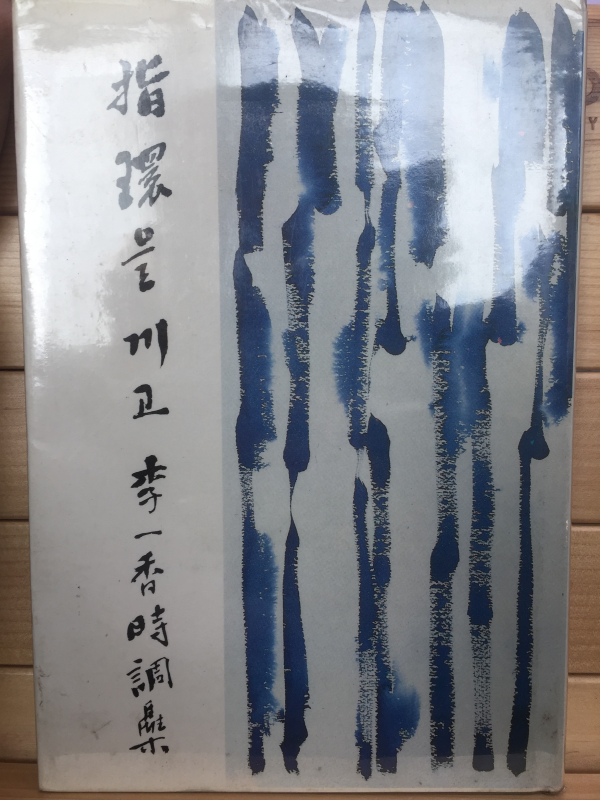 指環을 끼고 李一香時調集